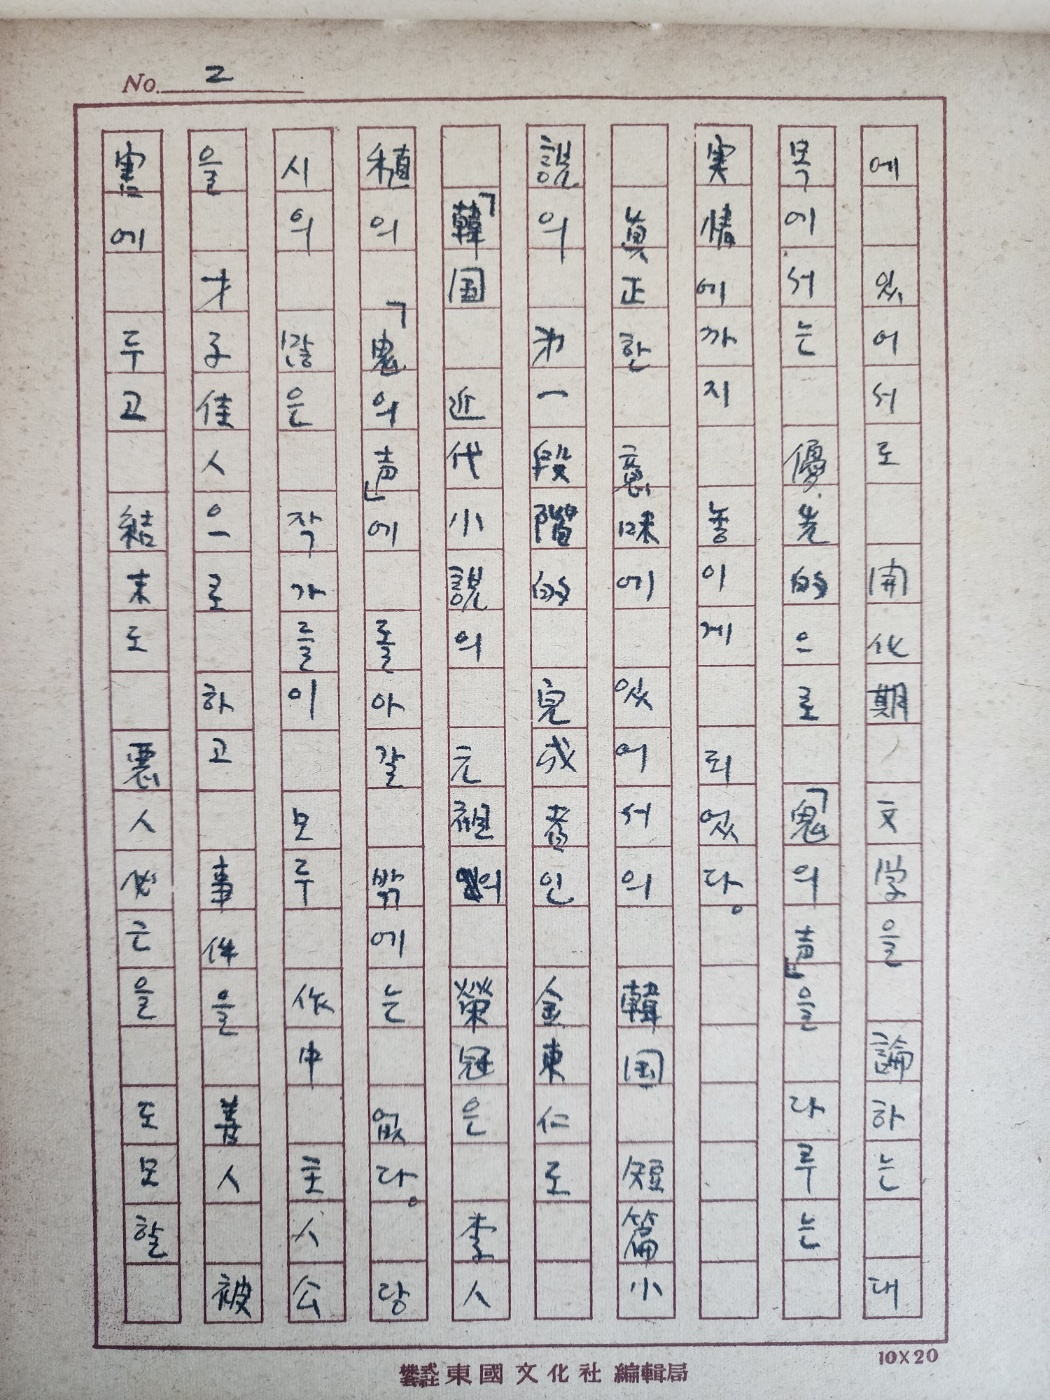 No. 2
에 있어서도 開化期 文学을 論하는 대
목에서는 優先的으로 「鬼의 声」을 다루는
実情에까지 놓이게 되었다。
眞正한 意味에 있어서의 韓国 短篇小
説의 第一段階的 完成者인 金東仁도
「韓国 近代小説의 元祖의 榮冠은 李人
稙의 「鬼의 声」에 돌아갈 밖에는 없다。 당
시의 많은 작가들이 모두 作中 主人公
을 才子佳人으로 하고 事件을 善人 被
害에 두고 結末도 悪人必亡을 도모할
株式會社 東國文化社 編輯局
10X20